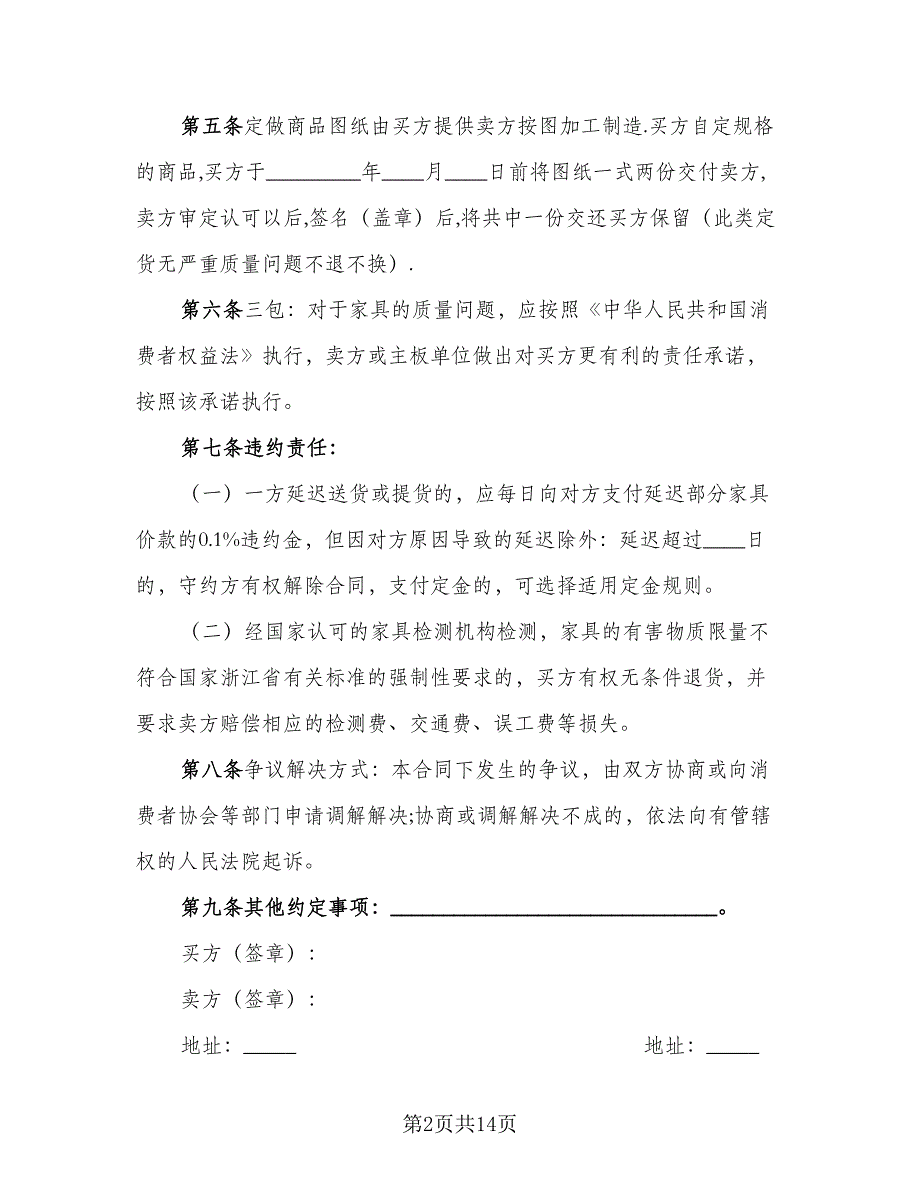 第五条定做商品图纸由买方提供卖方按图加工制造.买方自定规格
的商品,买方于_________年____月____日前将图纸一式两份交付卖方,
卖方审定认可以后,签名（盖章）后,将共中一份交还买方保留（此类定
货无严重质量问题不退不换）.
第六条三包：对于家具的质量问题，应按照《中华人民共和国消
费者权益法》执行，卖方或主板单位做出对买方更有利的责任承诺，
按照该承诺执行。
第七条违约责任：
（一）一方延迟送货或提货的，应每日向对方支付延迟部分家具
价款的0.1%违约金，但因对方原因导致的延迟除外：延迟超过____日
的，守约方有权解除合同，支付定金的，可选择适用定金规则。
（二）经国家认可的家具检测机构检测，家具的有害物质限量不
符合国家浙江省有关标准的强制性要求的，买方有权无条件退货，并
要求卖方赔偿相应的检测费、交通费、误工费等损失。
第八条争议解决方式：本合同下发生的争议，由双方协商或向消
费者协会等部门申请调解解决;协商或调解解决不成的，依法向有管辖
权的人民法院起诉。
第九条其他约定事项：_______________________________。
买方（签章）：
卖方（签章）：
地址：_____ 地址：_____
第2页共14页